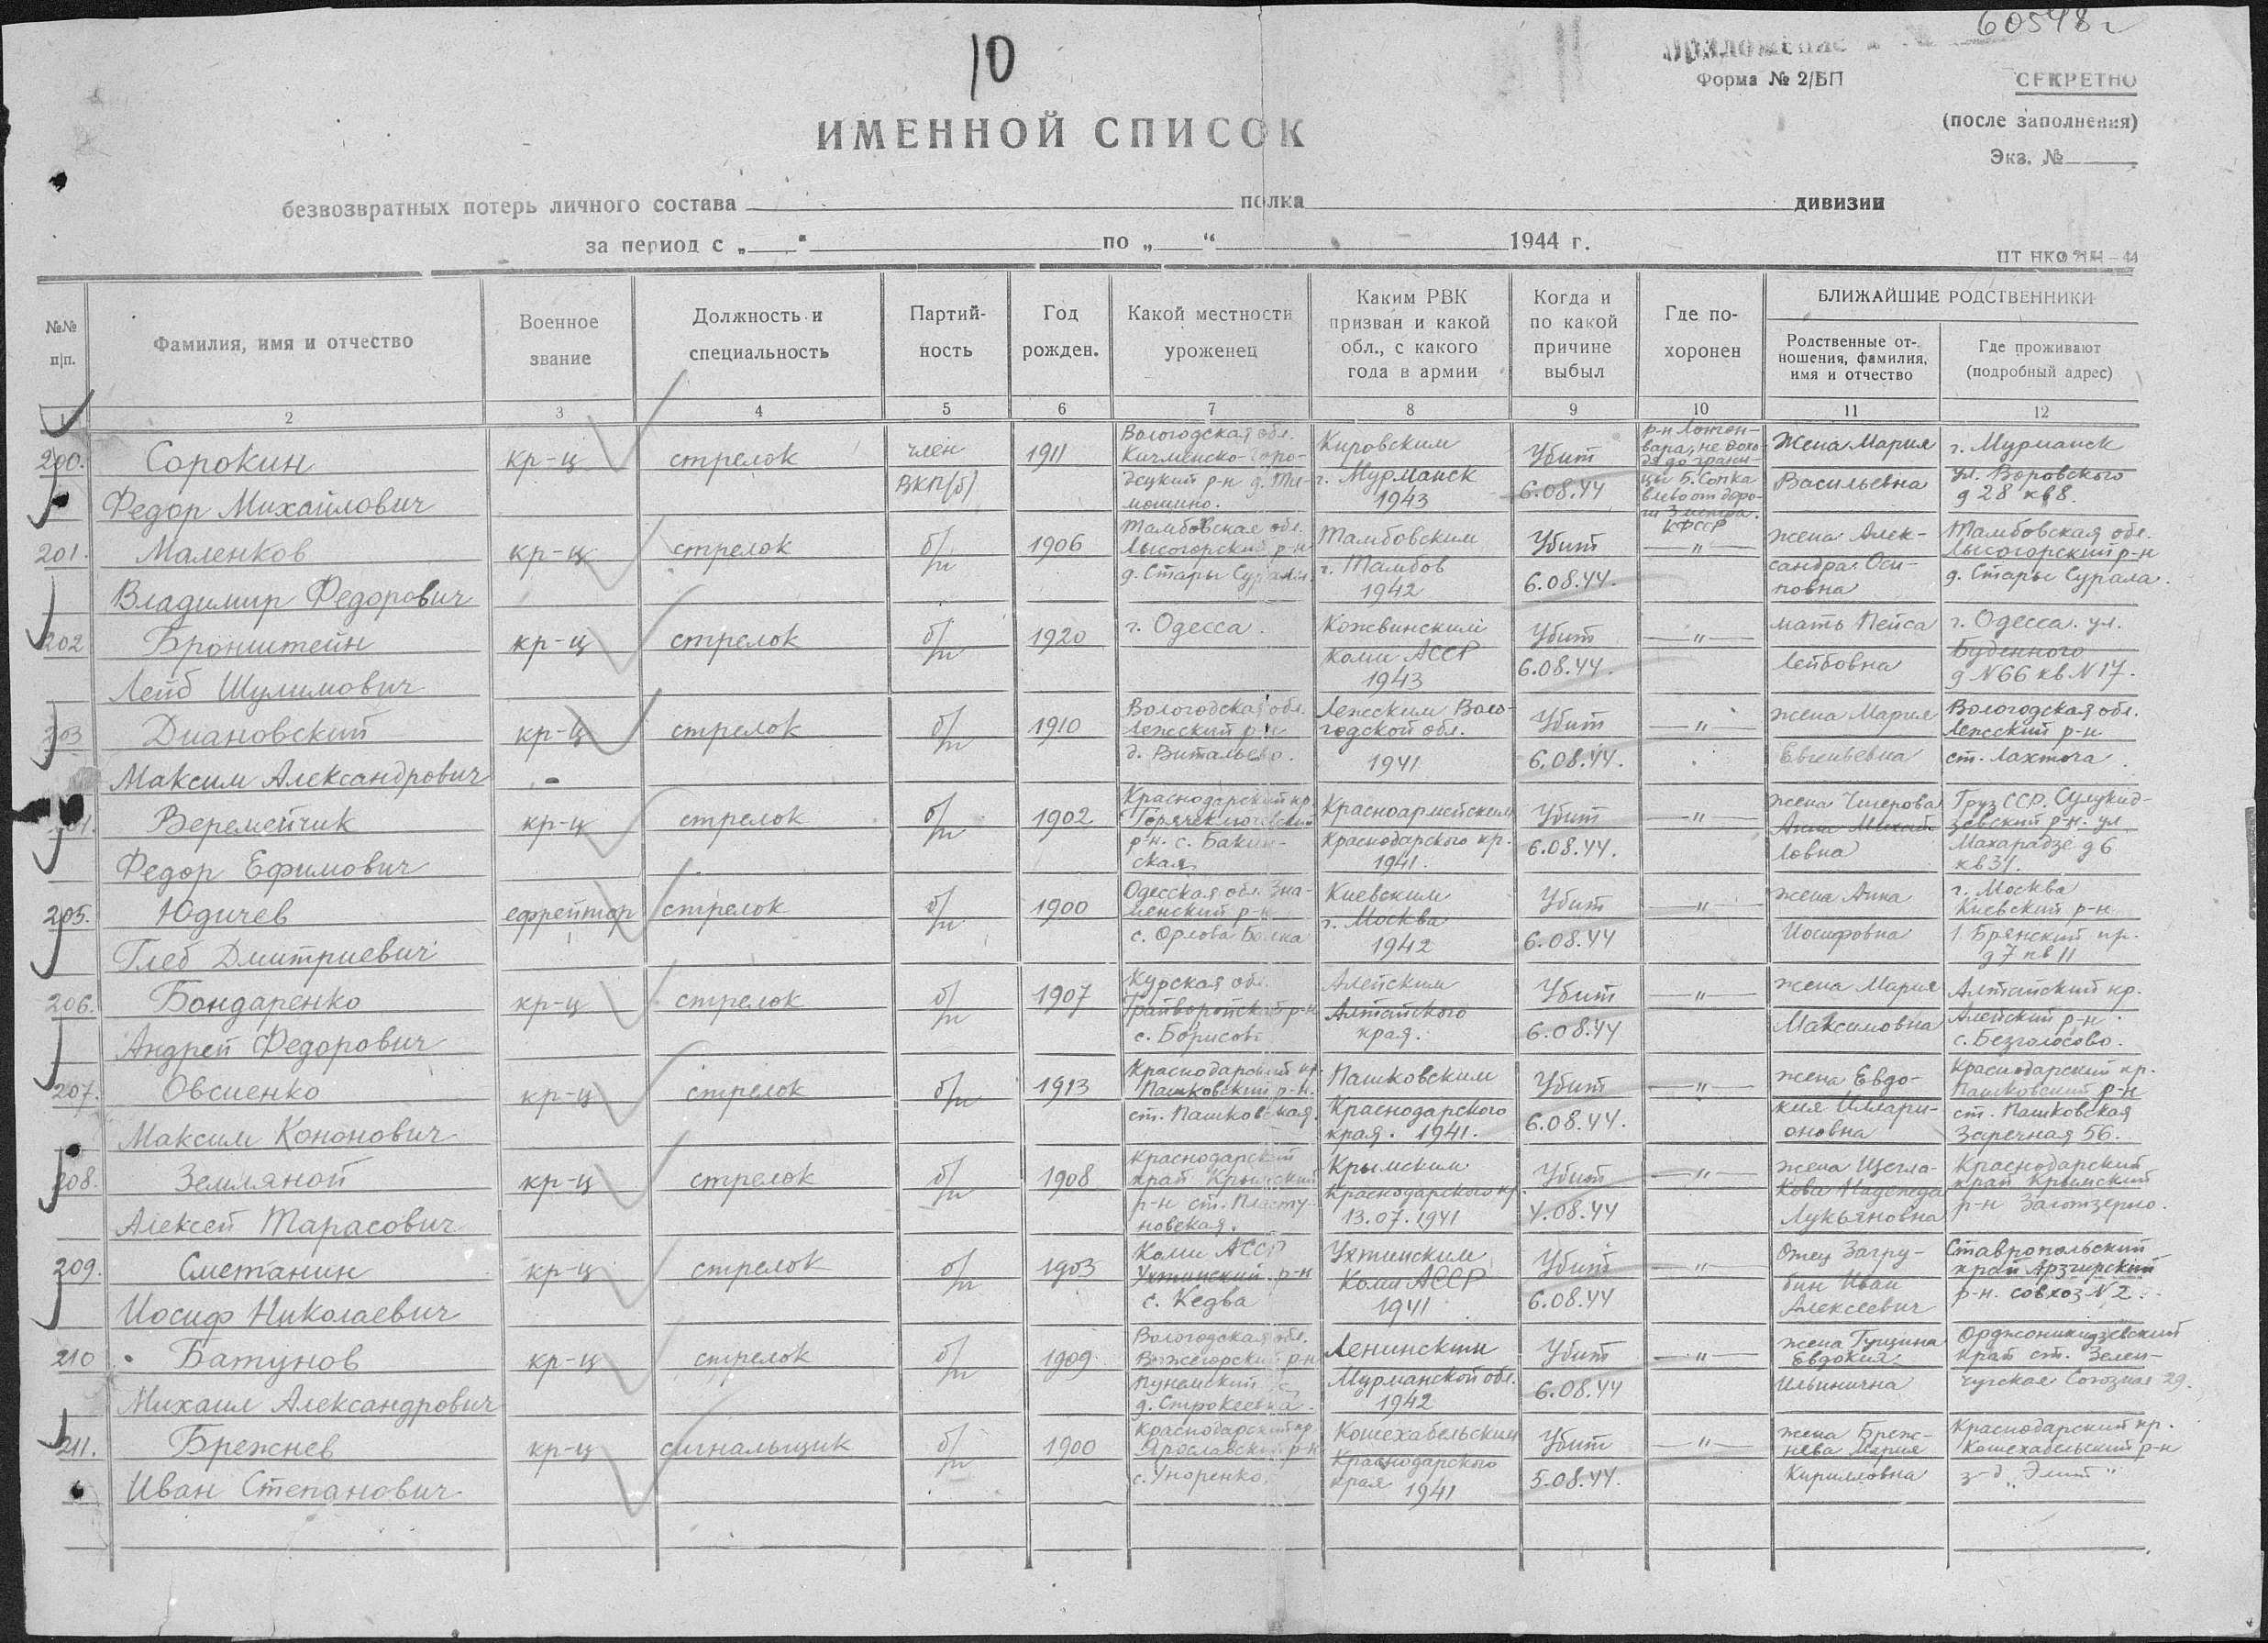 60548с
10
Приложение
Форма № 2/БП
СЕКРЕТНО
(после заполнения)
Экз. №
ИМЕННОЙ СПИСОК
безвозвратных потерь личного состава полка дивизии
за период с „ “ по „ “ 1944 г.
ПТ НКО – 44
№№ п|п.
Фамилия, имя и отчество
Военное звание
Должность и специальность
Партийность
Год рожден.
Какой местности уроженец
Каким РВК призван и какой обл., с какого года в армии
Когда и по какой причине выбыл
Где похоронен
БЛИЖАЙШИЕ РОДСТВЕННИКИ
Родственные отношения, фамилия, имя и отчество
Где проживают (подробный адрес)
1 2 3 4 5 6 7 8 9 10 11 12
200. Сорокин Федор Михайлович кр-ц стрелок член ВКП(б) 1911 Вологодская обл. Кичменско-Городецкий р-н д. Тимошино. Кировским г. Мурманск 1943 Убит 6.08.44 р-н вара, не доходя до границы Б. Сопка влево от дороги 3 метра. КФССР Жена Мария Васильевна г. Мурманск ул. Воровского д 28 кв 8.
201. Маленков Владимир Федорович кр-ц стрелок б/п 1906 Тамбовская обл. Лысогорский р-н д. Стары Тамбовским г. Тамбов 1942 Убит 6.08.44. —"— жена Александра Осиповна Тамбовская обл. Лысогорский р-н д. Стары Сурала.
202 Бронштейн Лейб Шулимович кр-ц стрелок б/п 1920 г. Одесса. Кожвинский Коми АССР 1943 Убит 6.08.44. —"— мать Пейса Лейбовна г. Одесса. ул. Буденного д N66 кв N17.
203 Диановский Максим Александрович кр-ц стрелок б/п 1910 Вологодская обл. Лежский р-н д. Витальево. Лежским Вологодской обл. 1941 Убит 6.08.44. —"— жена Мария Евгеньевна Вологодская обл. Лежский р-н ст. Лахтога
204. Веремейчик Федор Ефимович кр-ц стрелок б/п 1902 Краснодарский кр. Горячеключевский р-н. с. Бакинская Красноармейским Краснодарского кр. 1941. Убит 6.08.44. —"— жена Чигерова Анна Михайловна Груз ССР. р-н. ул Махарадзе д 6 кв 31.
205. Юдичев Глеб Дмитриевич ефрейтор стрелок б/п 1900 Одесская обл. Знаменский р-н с. Орлова Балка Киевским г. Москва 1942 Убит 6.08.44 —"— жена Анна Иосифовна г. Москва Киевский р-н 1. Брянский пр. д 7 кв 11
206. Бондаренко Андрей Федорович кр-ц стрелок б/п 1907 Курская обл. Грайворонский р-н с. Борисов Алейским Алтайского края. Убит 6.08.44 —"— жена Мария Максимовна Алтайский кр. Алейский р-н с. Безголосово.
207. Овсиенко Максим Кононович кр-ц стрелок б/п 1913 Краснодарский кр. Пашковский р-н. ст. Пашковская. Пашковским Краснодарского края. 1941. Убит 6.08.44. —"— жена Евдокия Илларионовна Краснодарский кр. Пашковский р-н ст. Пашковская Заречная 56.
208. Земляной Алексей Тарасович кр-ц стрелок б/п 1908 Краснодарский край Крымский р-н ст. Пластуновская. Крымским Краснодарского кр. 13.07.1941 Убит 4.08.44 —"— жена Щеглакова Надежда Лукьяновна Краснодарский край Крымский р-н Заготзерно.
209. Сметанин Иосиф Николаевич кр-ц стрелок б/п 1903 Коми АССР Ухтинский р-н с. Кедва Ухтинским Коми АССР 1941 Убит 6.08.44 —"— Отец Загрубин Иван Алексеевич Ставропольский край Арзгирский р-н. совхоз N2.
210 Батунов Михаил Александрович кр-ц стрелок б/п 1909 Вологодская обл. Вожегорский р-н Пунемский д. Строкеевка. Ленинским Мурманской обл. 1942 Убит 6.08.44 —"— жена Гущина Евдокия Ильинична Орджоникидзевский край ст. Зеленчугская Союзная 29.
211. Брежнев Иван Степанович кр-ц сигнальщик б/п 1900 Краснодарский кр Ярославский р-н с. Унаренко. Кошехабельским Краснодарского края 1941 Убит 5.08.44. —"— жена Брежнева Мария Кирилловна Краснодарский кр. Кошехабельский р-н з-д „Элит"